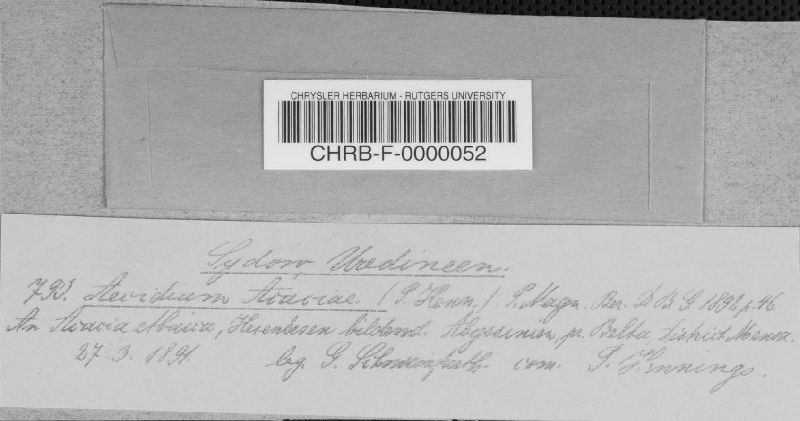 CHRYSLER HERBARIUM - RUTGERS UNIVERSITY
CHRB-F-0000052
Sydow, Uredineen.
793. Aecidium Acaciae (P. Henn.) P. Magn. Ber. D. B. G. 1892, p. 46
An Acacia etbaica, Hexenbesen bildend. Abyssinien, pr. Belta, District Mensa.
27. 3. 1891. leg. G. Schweinfurth com. P. Hennings.